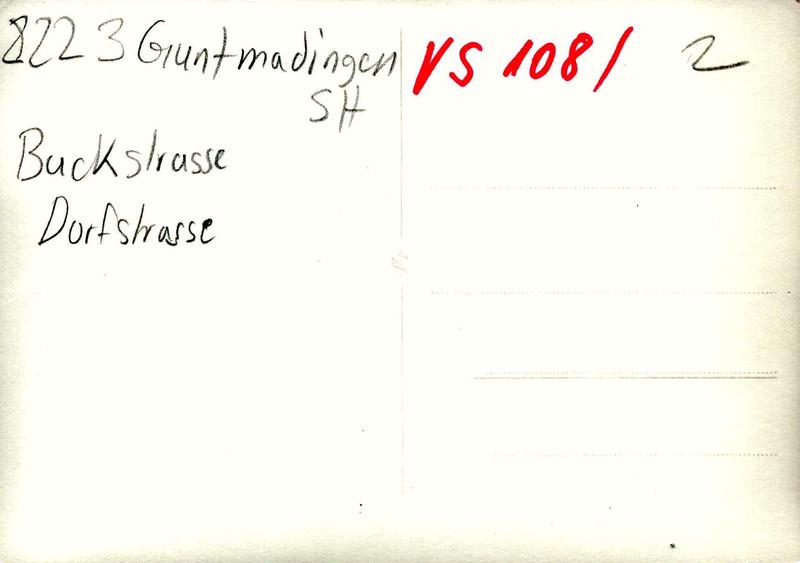 8223 Guntmadingen
SH
Buckstrasse
Dorfstrasse
VS 108/
2